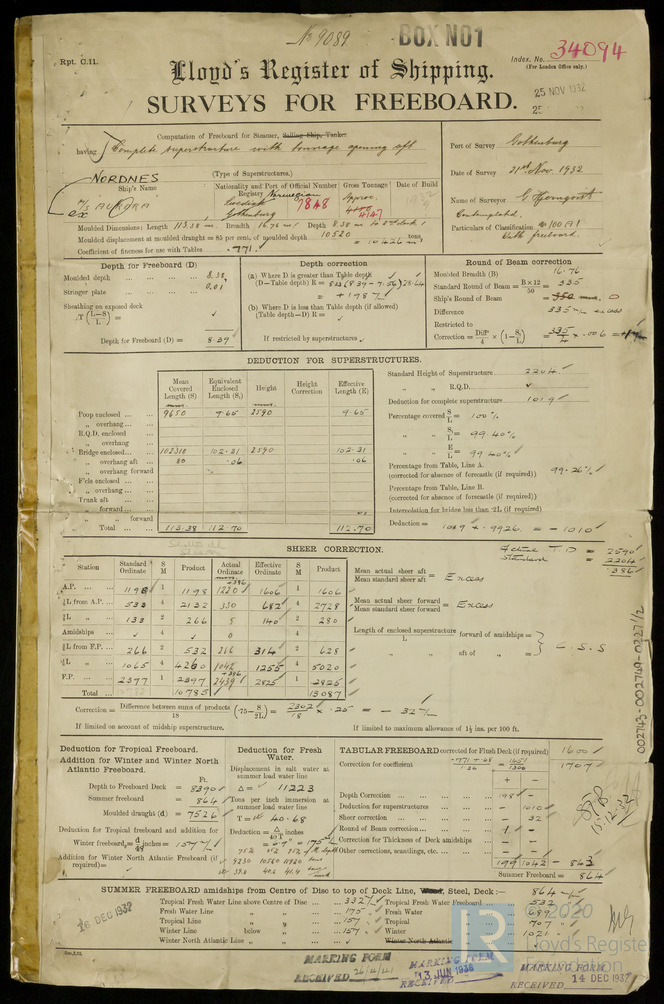 No 9089
BOX NO1
Rpt. C.11.
Index. No. 34094
(For London Office only.)
Lloyd's Register of Shipping.
25 NOV 1932
SURVEYS FOR FREEBOARD.
Computation of Freeboard for Summer, Sailing Ship, Tanker
having Complete superstructure with tonnage opening aft
(Type of Superstructures.)
Port of Survey Gothenburg
Date of Survey 21st Nov. 1932
Name of Surveyor
Contemplated
Particulars of Classification 100 A1
With freeboard.
NORDNES
Ship's Name
Nationality and Port of Official Number
Registry Norwegian
Gross Tonnage
Date of Build
M/S AURORA
ex
Swedish
Gothenburg
7848
Approx.
4100
4147
Moulded Dimensions: Length 113.38 m. Breadth 16.76 m. Depth 8.38 m to 2nd deck
Moulded displacement at moulded draught = 85 per cent. of moulded depth 10520 tons
= 10426 m³
Coefficient of fineness for use with Tables .771
Depth for Freeboard (D)
Moulded depth 8.38
Stringer plate 0.01
Sheathing on exposed deck
T (L-S/L) =
Depth for Freeboard (D) = 8.39
Depth correction
(a) Where D is greater than Table depth
(D—Table depth) R = 8.33 (8.39 - 7.56) 28.64
= + 198
(b) Where D is less than Table depth (if allowed)
(Table depth—D) R =
If restricted by superstructures
Round of Beam correction
Moulded Breadth (B) 16.76
Standard Round of Beam = B×12/50 = 335
Ship's Round of Beam = 350 mm. 0
Difference 335 m/m excess
Restricted to
Correction = Diff/4 × (1-S/L) = 335/4 × .006 = +
DEDUCTION FOR SUPERSTRUCTURES.
Mean Covered Length (S)
Equivalent Enclosed Length (S₁)
Height
Height Correction
Effective Length (E)
Poop enclosed 9650 9.65 2590 9.65
„ overhang
R.Q.D. enclosed
„ overhang
Bridge enclosed 102310 102.31 2590 102.31
„ overhang aft 80 .06 .06
„ overhang forward
F'cle enclosed
„ overhang
Trunk aft
„ forward
„ „ forward
Total 113.38 112.70 112.70
Standard Height of Superstructure 2204
„ „ R.Q.D.
Deduction for complete superstructure 1019
Percentage covered S/L = 100%
„ „ S₁/L = 99.40%
„ „ E/L = 99.40%
Percentage from Table, Line A.
(corrected for absence of forecastle (if required)) 99.26%
Percentage from Table, Line B.
(corrected for absence of forecastle (if required))
Interpolation for bridge less than ·2L (if required)
Deduction = 1019 × .9926 = - 1010
SHEER CORRECTION.
Actual T.D = 2590
Standard = 2204
386
Station
Standard Ordinate
S M
Product
Actual Ordinate
Effective Ordinate
S M
Product
A.P. 1198 1 1198 1220 +386 1606 1 1606
⅙L from A.P. 533 4 2132 330 682 4 2728
⅓L „ 133 2 266 8 140 2 280
Amidships 4 0 4
⅓L from F.P. 266 2 532 266 314 2 628
⅙L „ 1065 4 4260 1042 1255 4 5020
F.P. 2397 1 2397 2439 +386 2825 1 2825
Total 10785 13087
Mean actual sheer aft
Mean standard sheer aft = Excess
Mean actual sheer forward
Mean standard sheer forward = Excess
Length of enclosed superstructure forward of amidships =
L
„ „ aft of „ =
C.S.S
Correction = Difference between sums of products/18 (·75 - S/2L) = 2302/18 × .25 = - 32
If limited on account of midship superstructure.
If limited to maximum allowance of 1½ ins. per 100 ft.
Deduction for Tropical Freeboard.
Addition for Winter and Winter North Atlantic Freeboard.
Ft.
Depth to Freeboard Deck = 8390
Summer freeboard = 864
Moulded draught (d) = 7526
Deduction for Tropical freeboard and addition for
Winter freeboard = d/48 inches = 157
Addition for Winter North Atlantic Freeboard (if required) =
Deduction for Fresh Water.
Displacement in salt water at
summer load water line
Δ = 11223
Tons per inch immersion at
summer load water line
T = 40.68
Deduction = Δ/40T inches
= 6.9" = 175
TABULAR FREEBOARD corrected for Flush Deck (if required) 1600
Correction for coefficient .771 + .68/1.36 = 1.451/1.360 1707
+ -
Depth Correction 198 -
Deduction for superstructures - 1010
Sheer correction - 32
Round of Beam correction 1 -
Correction for Thickness of Deck amidships -
Other corrections, scantlings, etc. -
199 1042 - 843
Summer Freeboard = 864
SUMMER FREEBOARD amidships from Centre of Disc to top of Deck Line, Wood, Steel, Deck:- 864
Tropical Fresh Water Line above Centre of Disc 332
Fresh Water Line „ „ 175
Tropical Line „ „ 157
Winter Line below „ 157
Winter North Atlantic Line „ „
Tropical Fresh Water Freeboard 532
Fresh Water „ 689
Tropical „ 707
Winter „ 1021
Winter North Atlantic
16 DEC 1932
MARKING FORM
RECEIVED
MARKING FORM
13 JUN 1936
RECEIVED
MARKING FORM
RECEIVED 14 DEC 1932
002743-002749-0227 1/2
LR
©2020
Lloyd's Register
Foundation